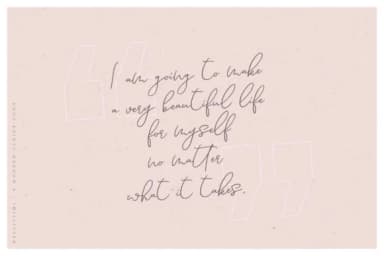 I am going to make
a very beautiful life
for myself
no matter
what it takes.